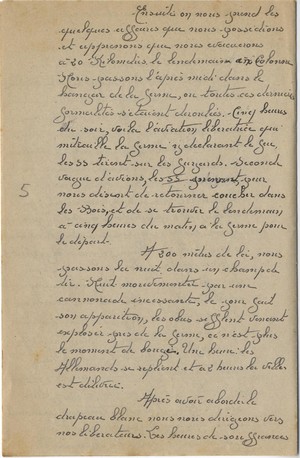 Ensuite on nous prend les
quelques affaires que nous possedions
et apprenons que nous évacuerons
à 20 Kilomètres le lendemain en Colonne
Nous passons l'après midi dans le
hangar de la ferme, ou toutes ces dernières
formalités s'étaient déroulés. Cinq heures
du soir, voila l'aviation libératrice qui
mitraille la ferme y déclarant le feu,
les SS tirent sur les fuyards. Second
vague d'avions, les SS
nous disent de retourner coucher dans
les Bois, et de se trouver le lendemain
à cinq heures du matin a la ferme pour
le départ.
5
A 300 mètres de là, nous
passons la nuit, dans un champ de
blé. Nuit mouvementée par une
cannonade incessante, le jour fait
son apparition, les obus sifflent venant
exploser près de la ferme, ce n'est plus
le moment de bouger. Une heure les
Allemands se replient et a 2 heures la ville
est délivrée.
Après avoir arboré le
drapeau blanc nous nous dirigeons vers
nos liberateurs. Ces heures de souffrances